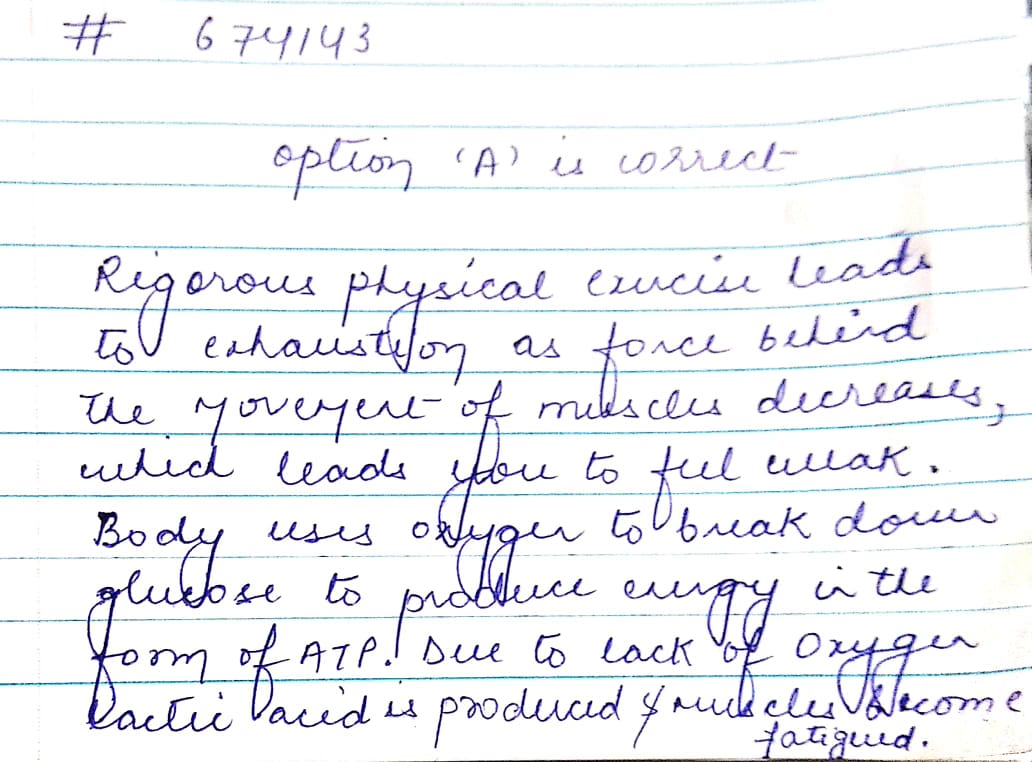 # 674143
option 'A' is correct
Rigorous physical exercise leads
to exhaustion as force behind
the movement of muscles decreases,
which leads you to feel weak.
Body uses oxygen to break down
glucose to produce energy in the
form of ATP. Due to lack of oxygen
lactic acid is produced & muscles become
fatigued.